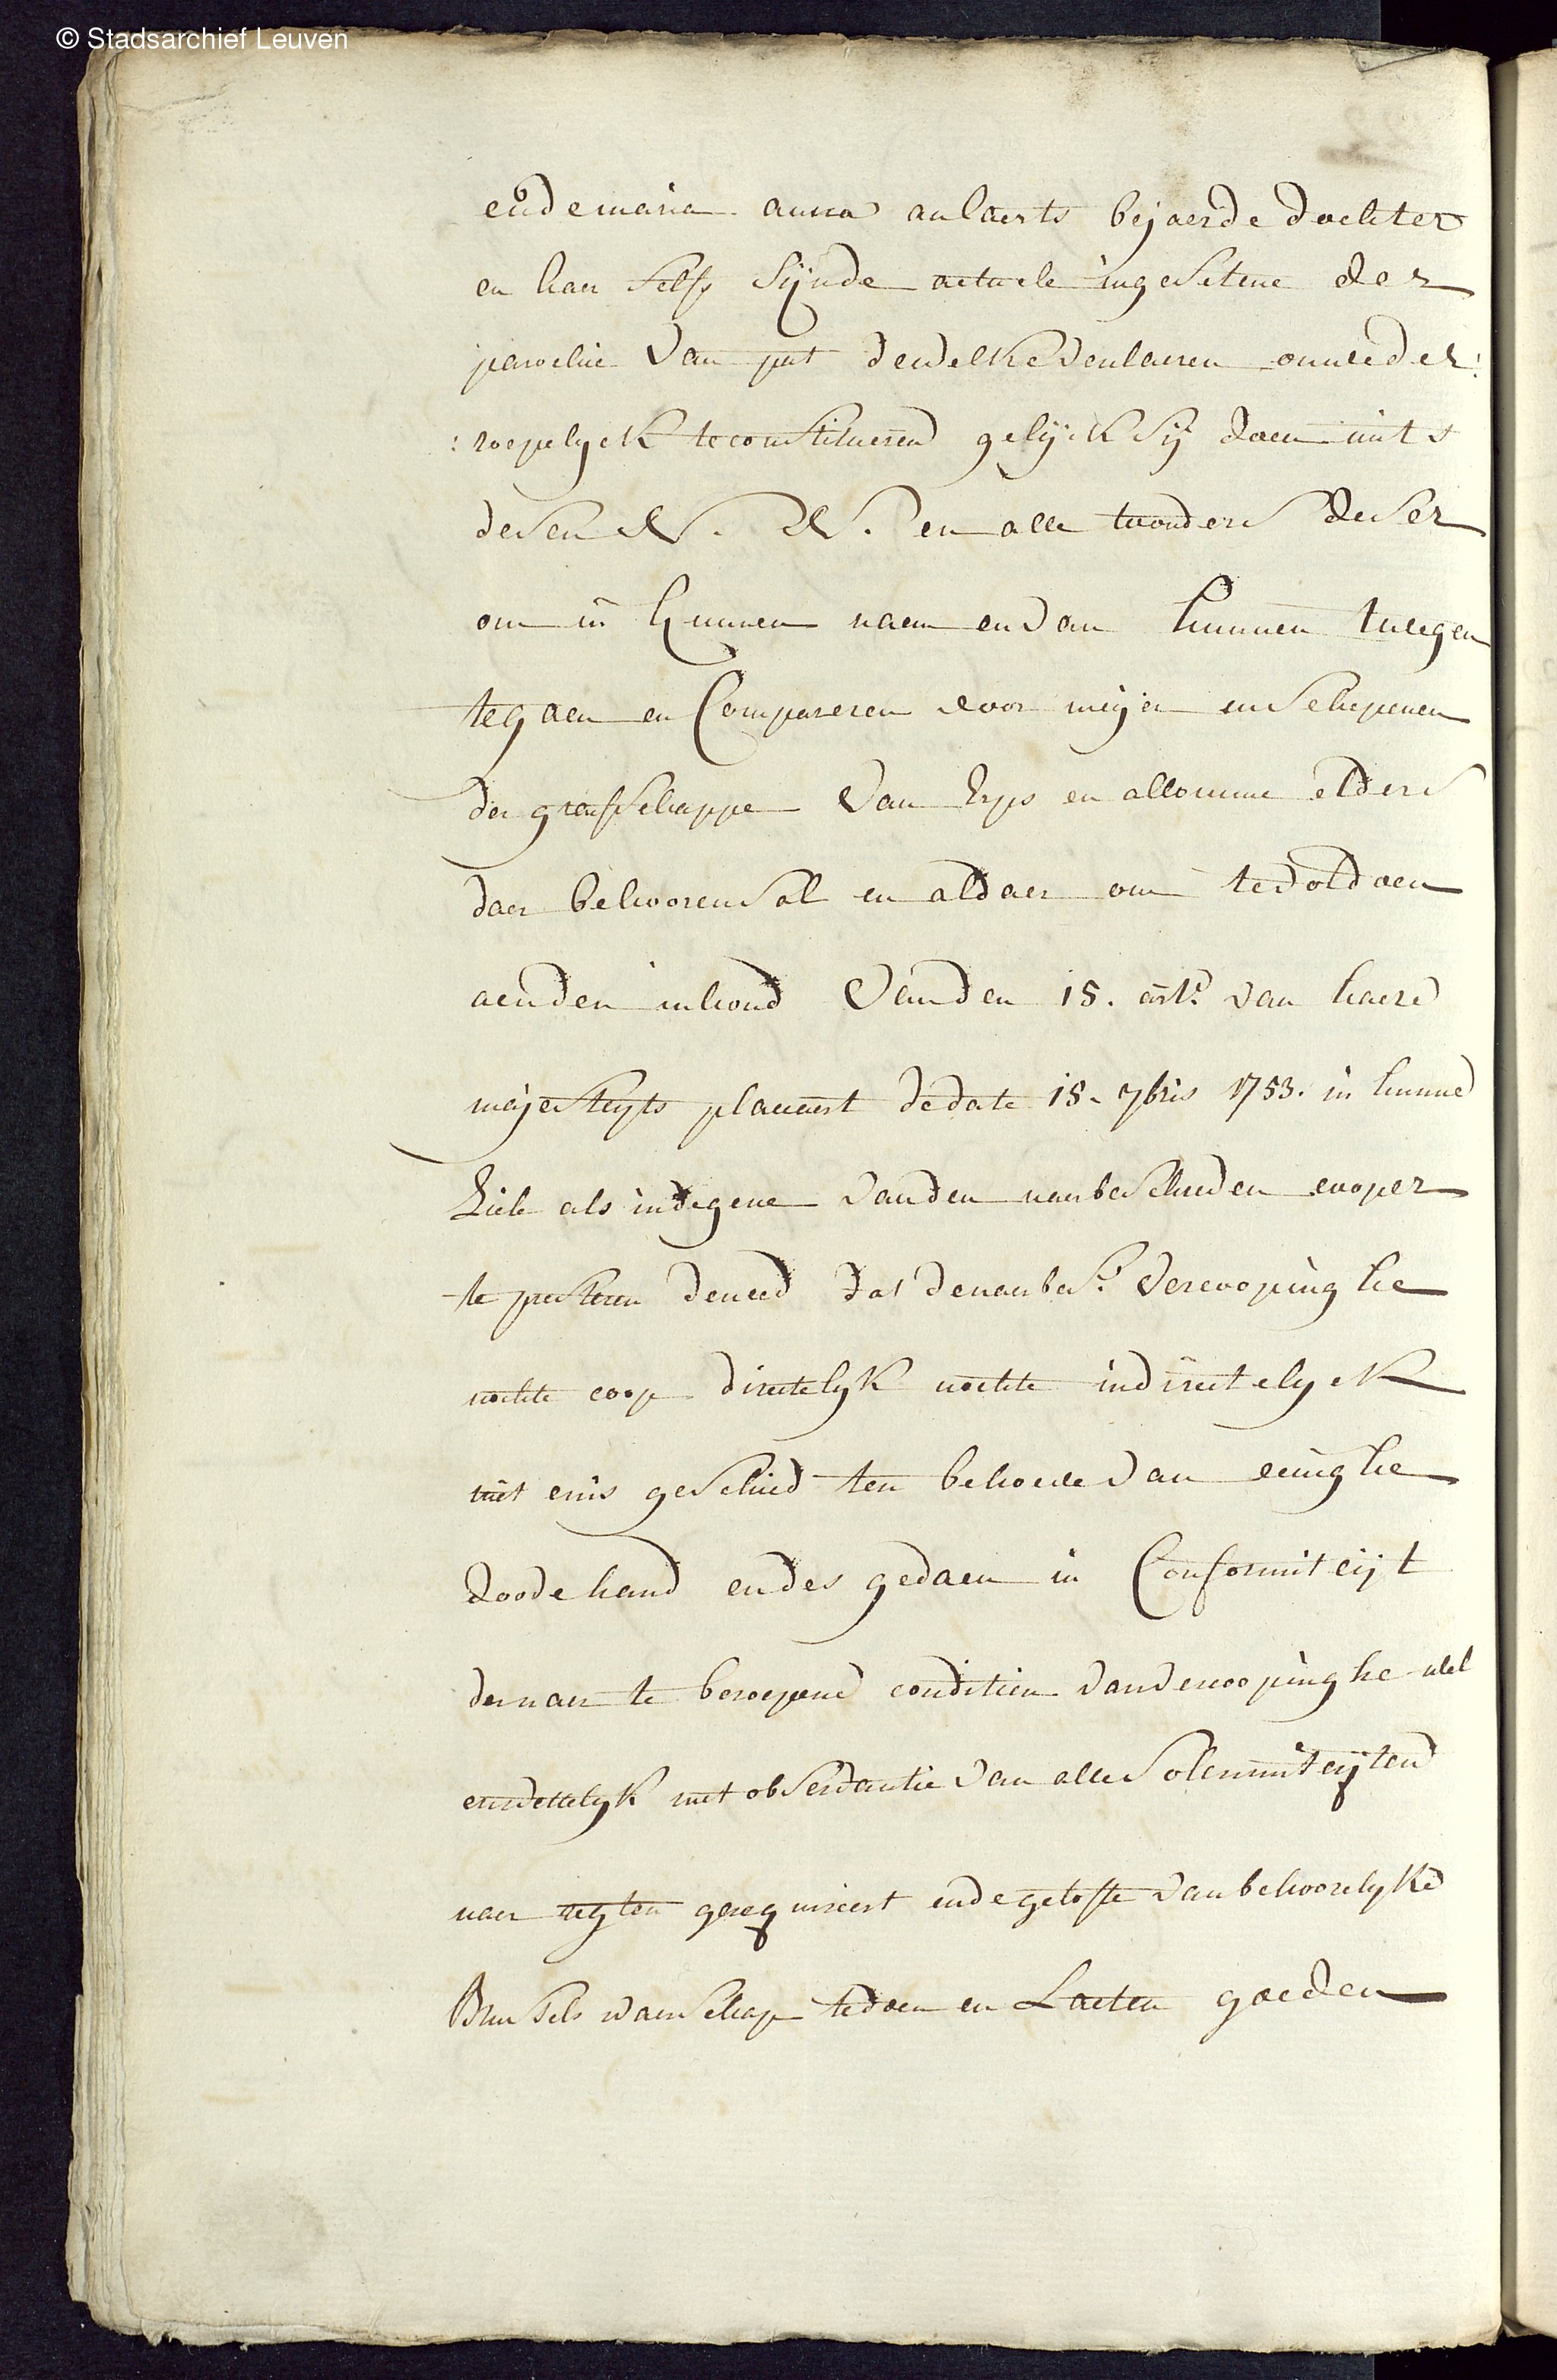 © Stadsarchief Leuven
ende maria anna aulaerts bejaerde dochter
en haer selfs sijnde actuele ingesetene der
parochie van put dewelke verclaeren onweder:
:roepelyck te constitueren gelijck sij doen mits
desen N. N. en alle thoonders deser
om in hunnen naem en van hunnen tweegen
te gaen en Compareren voor meijer en schepenen
der graefschappe van Erps en allomme elders
daer behooren sal en aldaer om te voldoen
aen den inhoud van den 15. art.e van haere
majesteyts placcaert de date 15. 7bris 1753. in hunne
Ziele als in degene van den naerbeschreden cooper
te presteren den eed dat de naerbes.e vercoopinghe
nochte coop directelyk nochte indirectelyck
niet en is geschied ten behoeve van eenighe
doode hand en des gedaen in Conformiteijt
der naer te beroepene conditien van vercoopinghe wel
en wettelyk met observantie van alle solemniteijten
naer regten gerequireert ende gelofte van behoorelyke
Brussels waerschap te doen en Laeten goeden